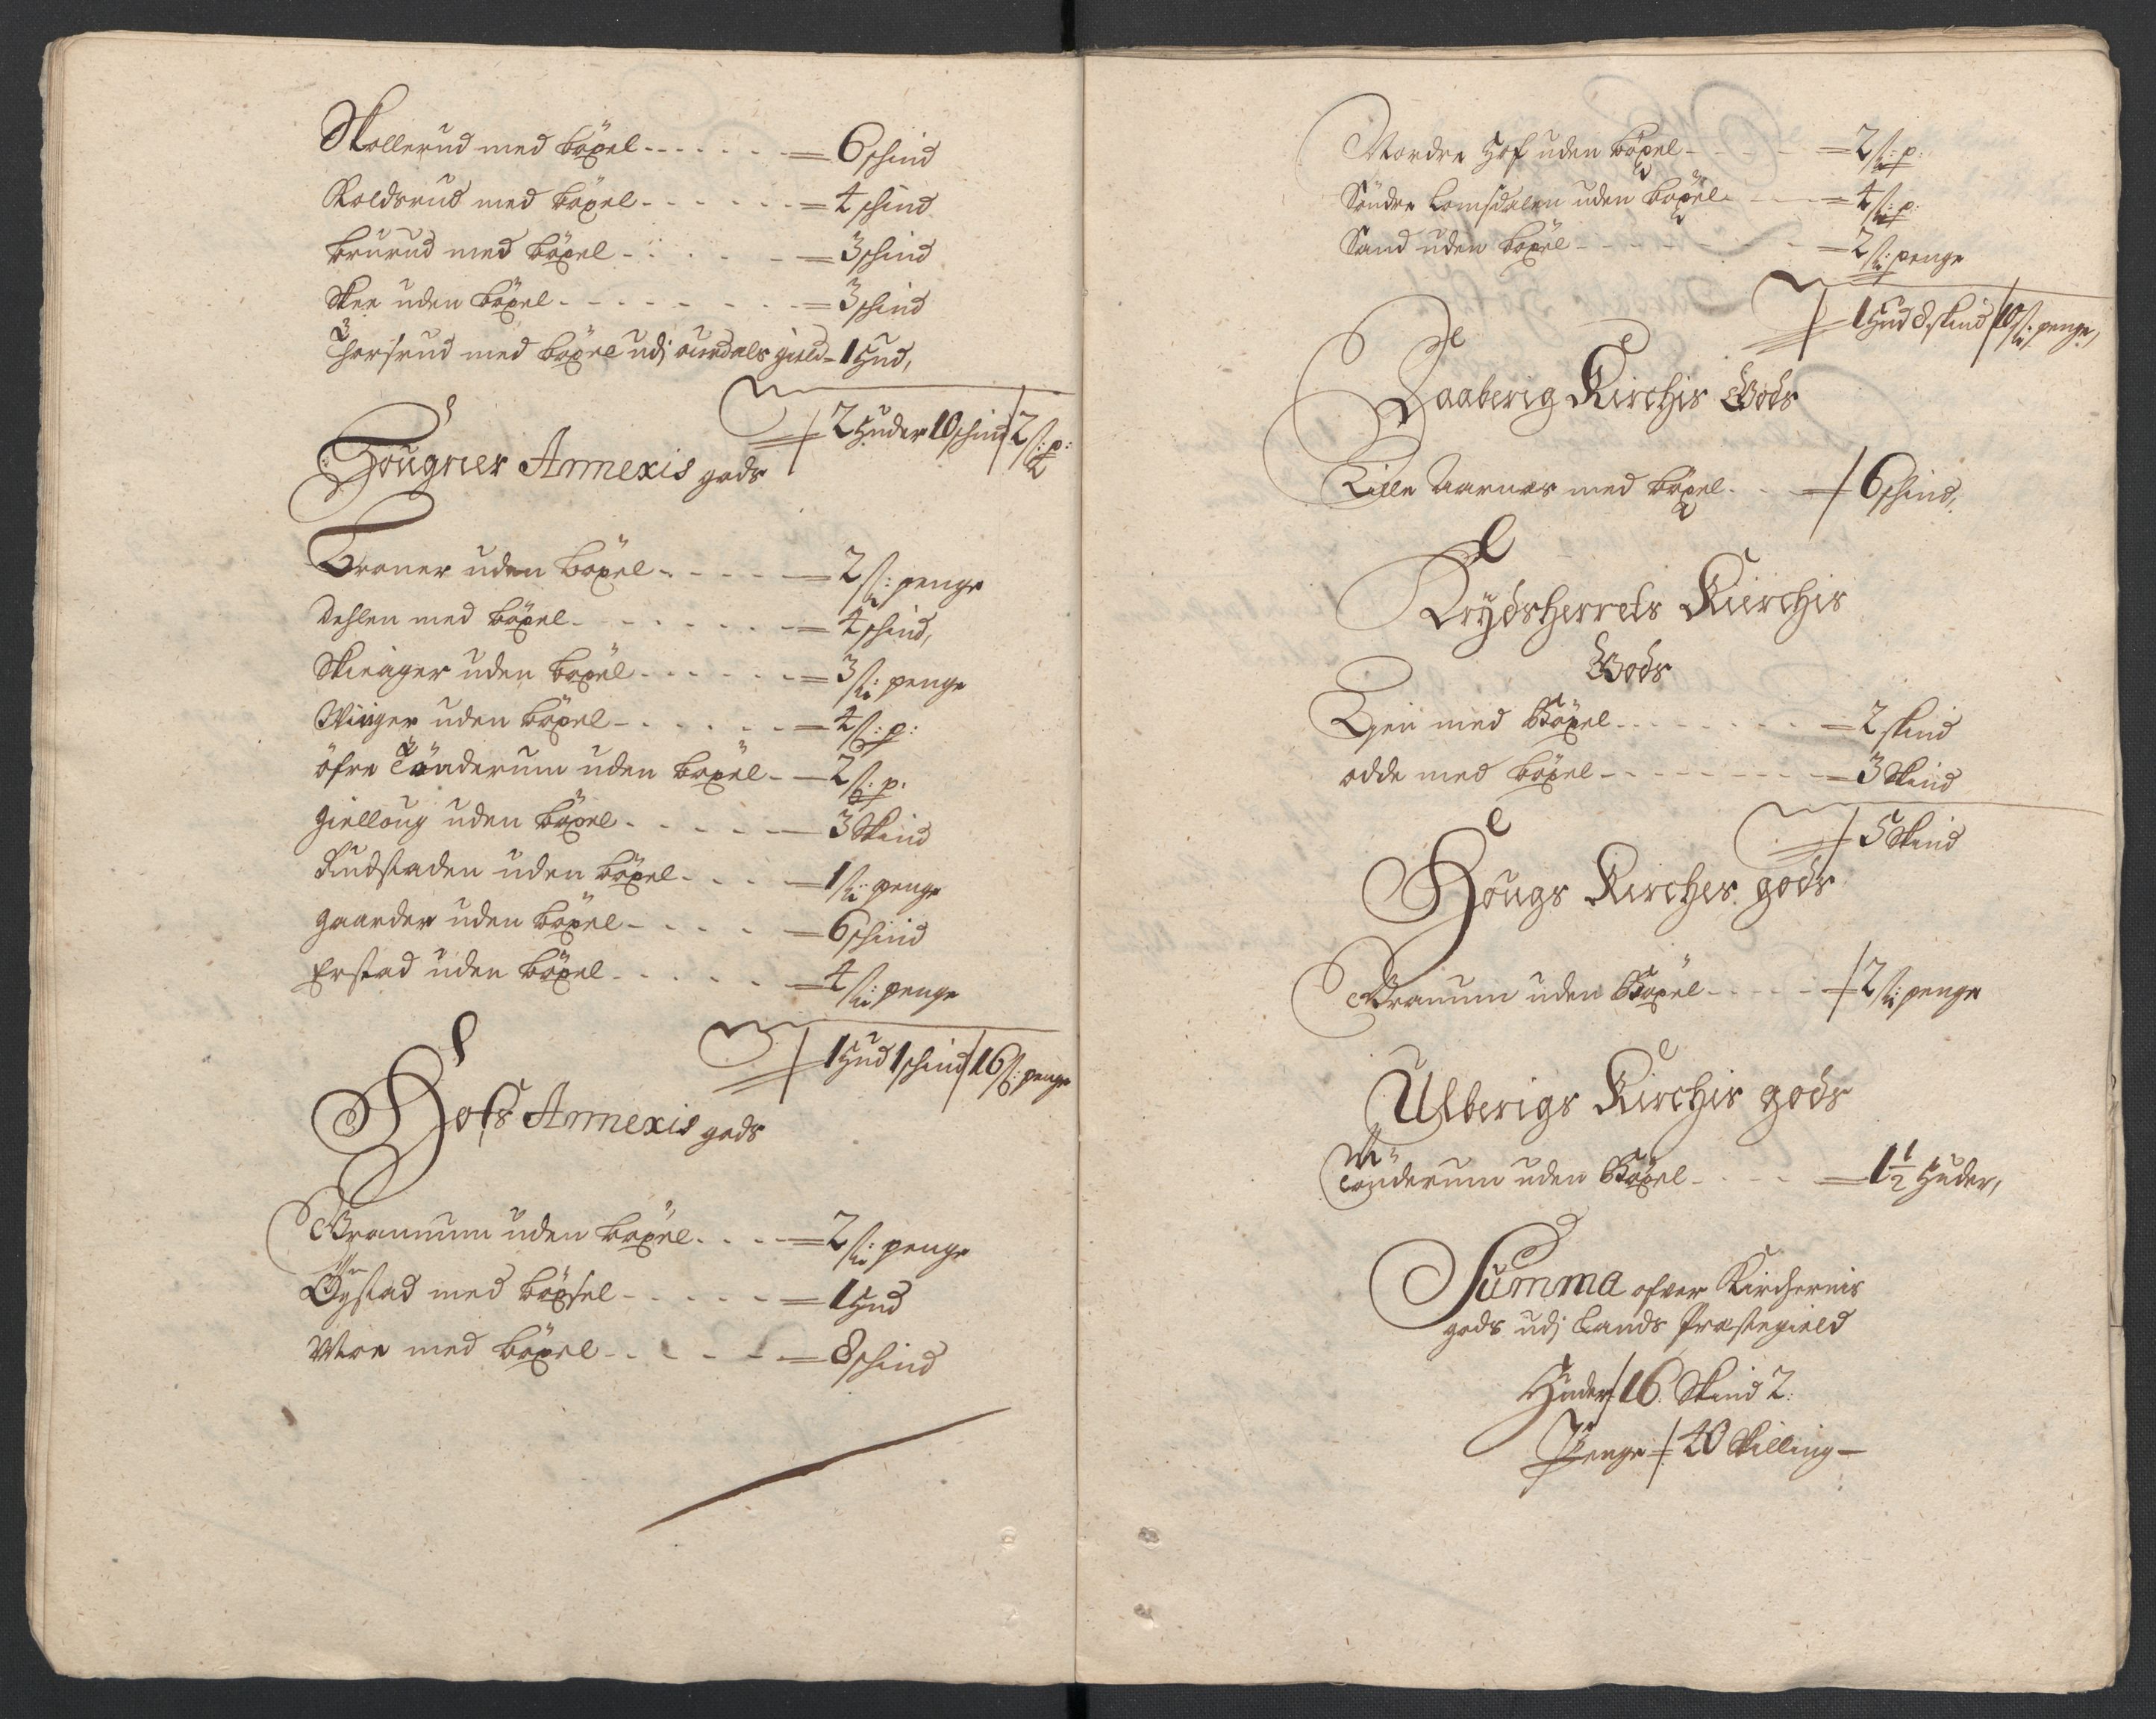 Skollerud med böxel - - - - - - = 6 skind
Roldsrud med böxel - - - - - - = 4 skind
brurud med böxel - - - - - = 3 skind
Skee uden böxel - - - - - - - = 3 skind
Thorsrud med böxel udj aurdals gield = 1 Hud,
2 Huder 10 skind 2 ß: p:
Hougner Annexis gods
Braner uden böxel - - - - - = 2 ß: penge
Dehlen med böxel - - - - - - - = 4 skind,
Skiager uden böxel - - - - - = 3 ß: penge
Winger uden böxel - - - - - = 4 ß: p:
öfre Tönderum uden böxel - = 2 ß: p:
gielloug uden böxel - - - - - 3 Skind
Rudstaden uden böxel - - - = 1 ß: penge
gaarder uden böxel - - - - = 6 skind
Erstad uden böxel - - - - - = 4 ß: penge
1 Hud 1 skind 16 ß: penge
Hofs Annexis gods
Granum uden böxel - - - = 2 ß: penge
Öystad med böxsel - - - - - = 1 Hud
Moe med böxel - - - - - = 8 skind
Nordre Hof uden böxel - - - - = 2 ß: p:
Söndre Lomsdalen uden böxel - - = 4 ß: p:
Sand uden böxel - - - - - - - = 2 ß: penge
1 Hud 8 skind 10 ß: penge,
Faaberig Kirchis Gods
Lille Aarnes med böxel - - = 6 skind,
Krydsherrets Kierchis
Gods
Egeii med Böxel - - - - - - = 2 skind
odde med böxel - - - - - - - = 3 Skind
5 Skind
Hougs Kirches gods
Granum uden Böxel - - - - = 2 ß: penge
Ulberigs Kirchis gods
Tönderum uden Böxel - - - - = 1 1/2 Huder,
Summa ofver Kirchernis
gods udj Lands Præstegield
Huder 16 Skind 2:
Penge 40 Skilling -